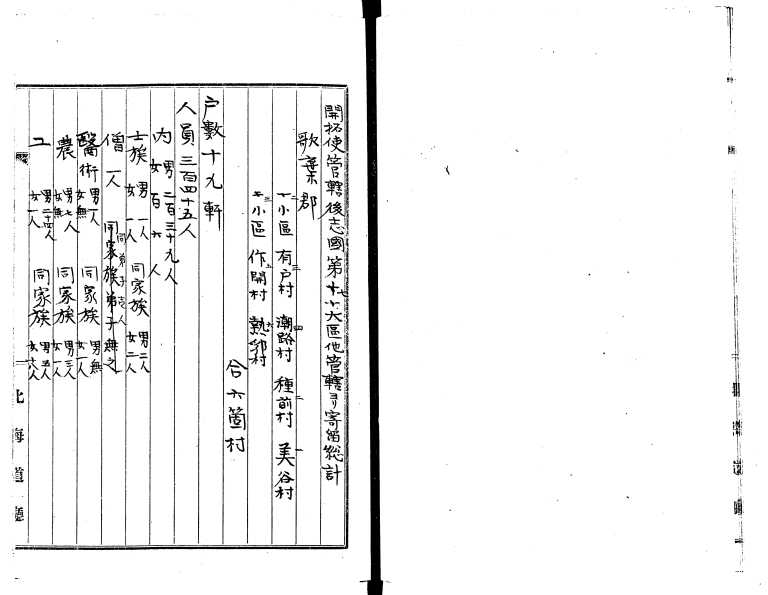 開拓使管轄後志國第十七大區他管轄ヨリ寄留総計
歌棄郡
一小區 有戸村 潮路村 種前村 美谷村
二小區 作開村 熱郛村
合六箇村
戸數十九軒
人員三百四十五人
内 男二百三十九人 女百六人
士族 男一人 女一人 同家族 男二人 女二人
僧一人 同家族弟子無之
醫術 男一人 女無 同家族 男無 女一人
農 男七人 女無 同家族 男三人 女一人
工 女一人 同家族 男五人 女六人
北海道廳